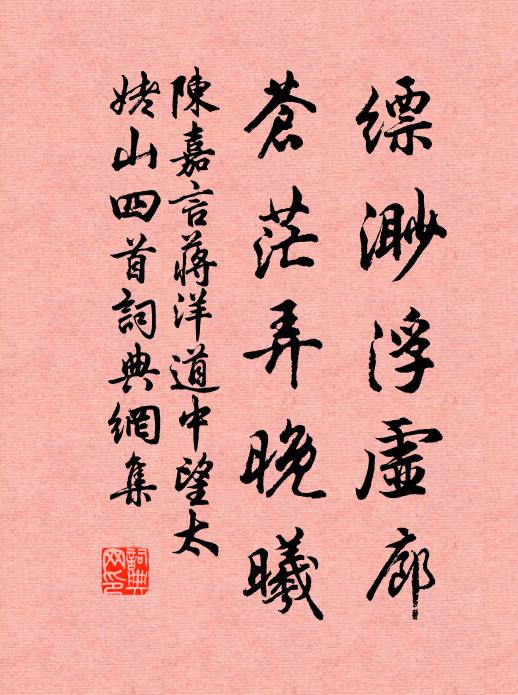 缥渺浮虛廊
蒼茫弄晚曦
陳嘉言蔣洋道中望太
姥山四首詞典網集
詞典
网印